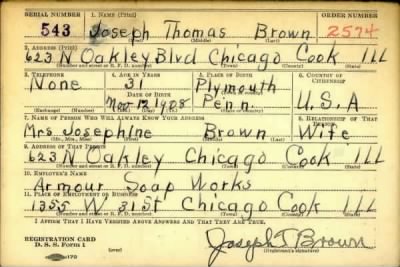 SERIAL NUMBER 1. NAME (Print) ORDER NUMBER
543 Joseph Thomas Brown 2574
(First) (Middle) (Last)
2. ADDRESS (Print)
623 N Oakley Blvd Chicago Cook ILL
(Number and street or R. F. D. number) (Town) (County) (State)
3. TELEPHONE 4. AGE IN YEARS 5. PLACE OF BIRTH 6. COUNTRY OF CITIZENSHIP
None 31 Plymouth
DATE OF BIRTH (Town or county)
Nov 12 1908 Penn. U.S.A
(Mo.) (Day) (Yr.) (State or country)
7. NAME OF PERSON WHO WILL ALWAYS KNOW YOUR ADDRESS 8. RELATIONSHIP OF THAT PERSON
Mrs Josephine Brown Wife
(Mr., Mrs., Miss) (First) (Middle) (Last)
9. ADDRESS OF THAT PERSON
623 N Oakley Chicago Cook ILL
(Number and street or R. F. D. number) (Town) (County) (State)
10. EMPLOYER'S NAME
Armour Soap Works
11. PLACE OF EMPLOYMENT OR BUSINESS
1355 W 31St Chicago Cook ILL
(Number and street or R. F. D. number) (Town) (County) (State)
I AFFIRM THAT I HAVE VERIFIED ABOVE ANSWERS AND THAT THEY ARE TRUE.
REGISTRATION CARD
D. S. S. FORM 1 Joseph T Brown
(Registrant's signature)